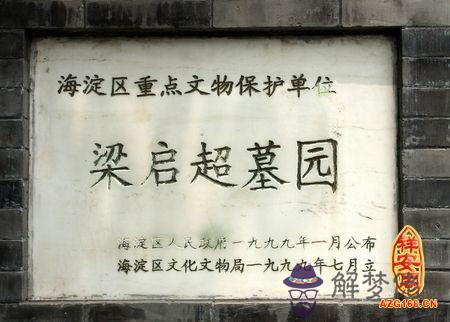 海淀区重点文物保护单位
梁启超墓园
海淀区人民政府一九九九年一月公布
海淀区文化文物局一九九九年七月立
祥安
解梦佬
AZG168.CN